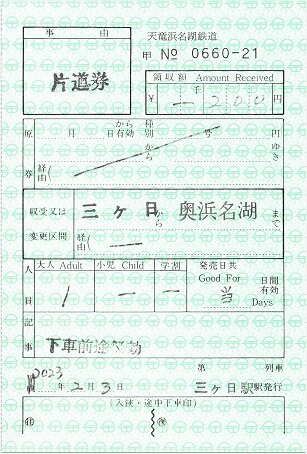 事由
天竜浜名湖鉄道
片道券
甲 № 0660-21
領収額 Amount Received
¥ 千 — 200 円
原券
から 種
月 日有効 別 号 円
から ゆき
経由
収受又は
変更区間
三ヶ日 から 奥浜名湖 まで
経由 —
人員
大人 Adult 小児 Child 学割 発売日共
Good For 日間有効
1 — — 当 Days
記事
下車前途無効
第 列車
2023年2月3日 三ヶ日駅駅発行
(入鋏・途中下車印)